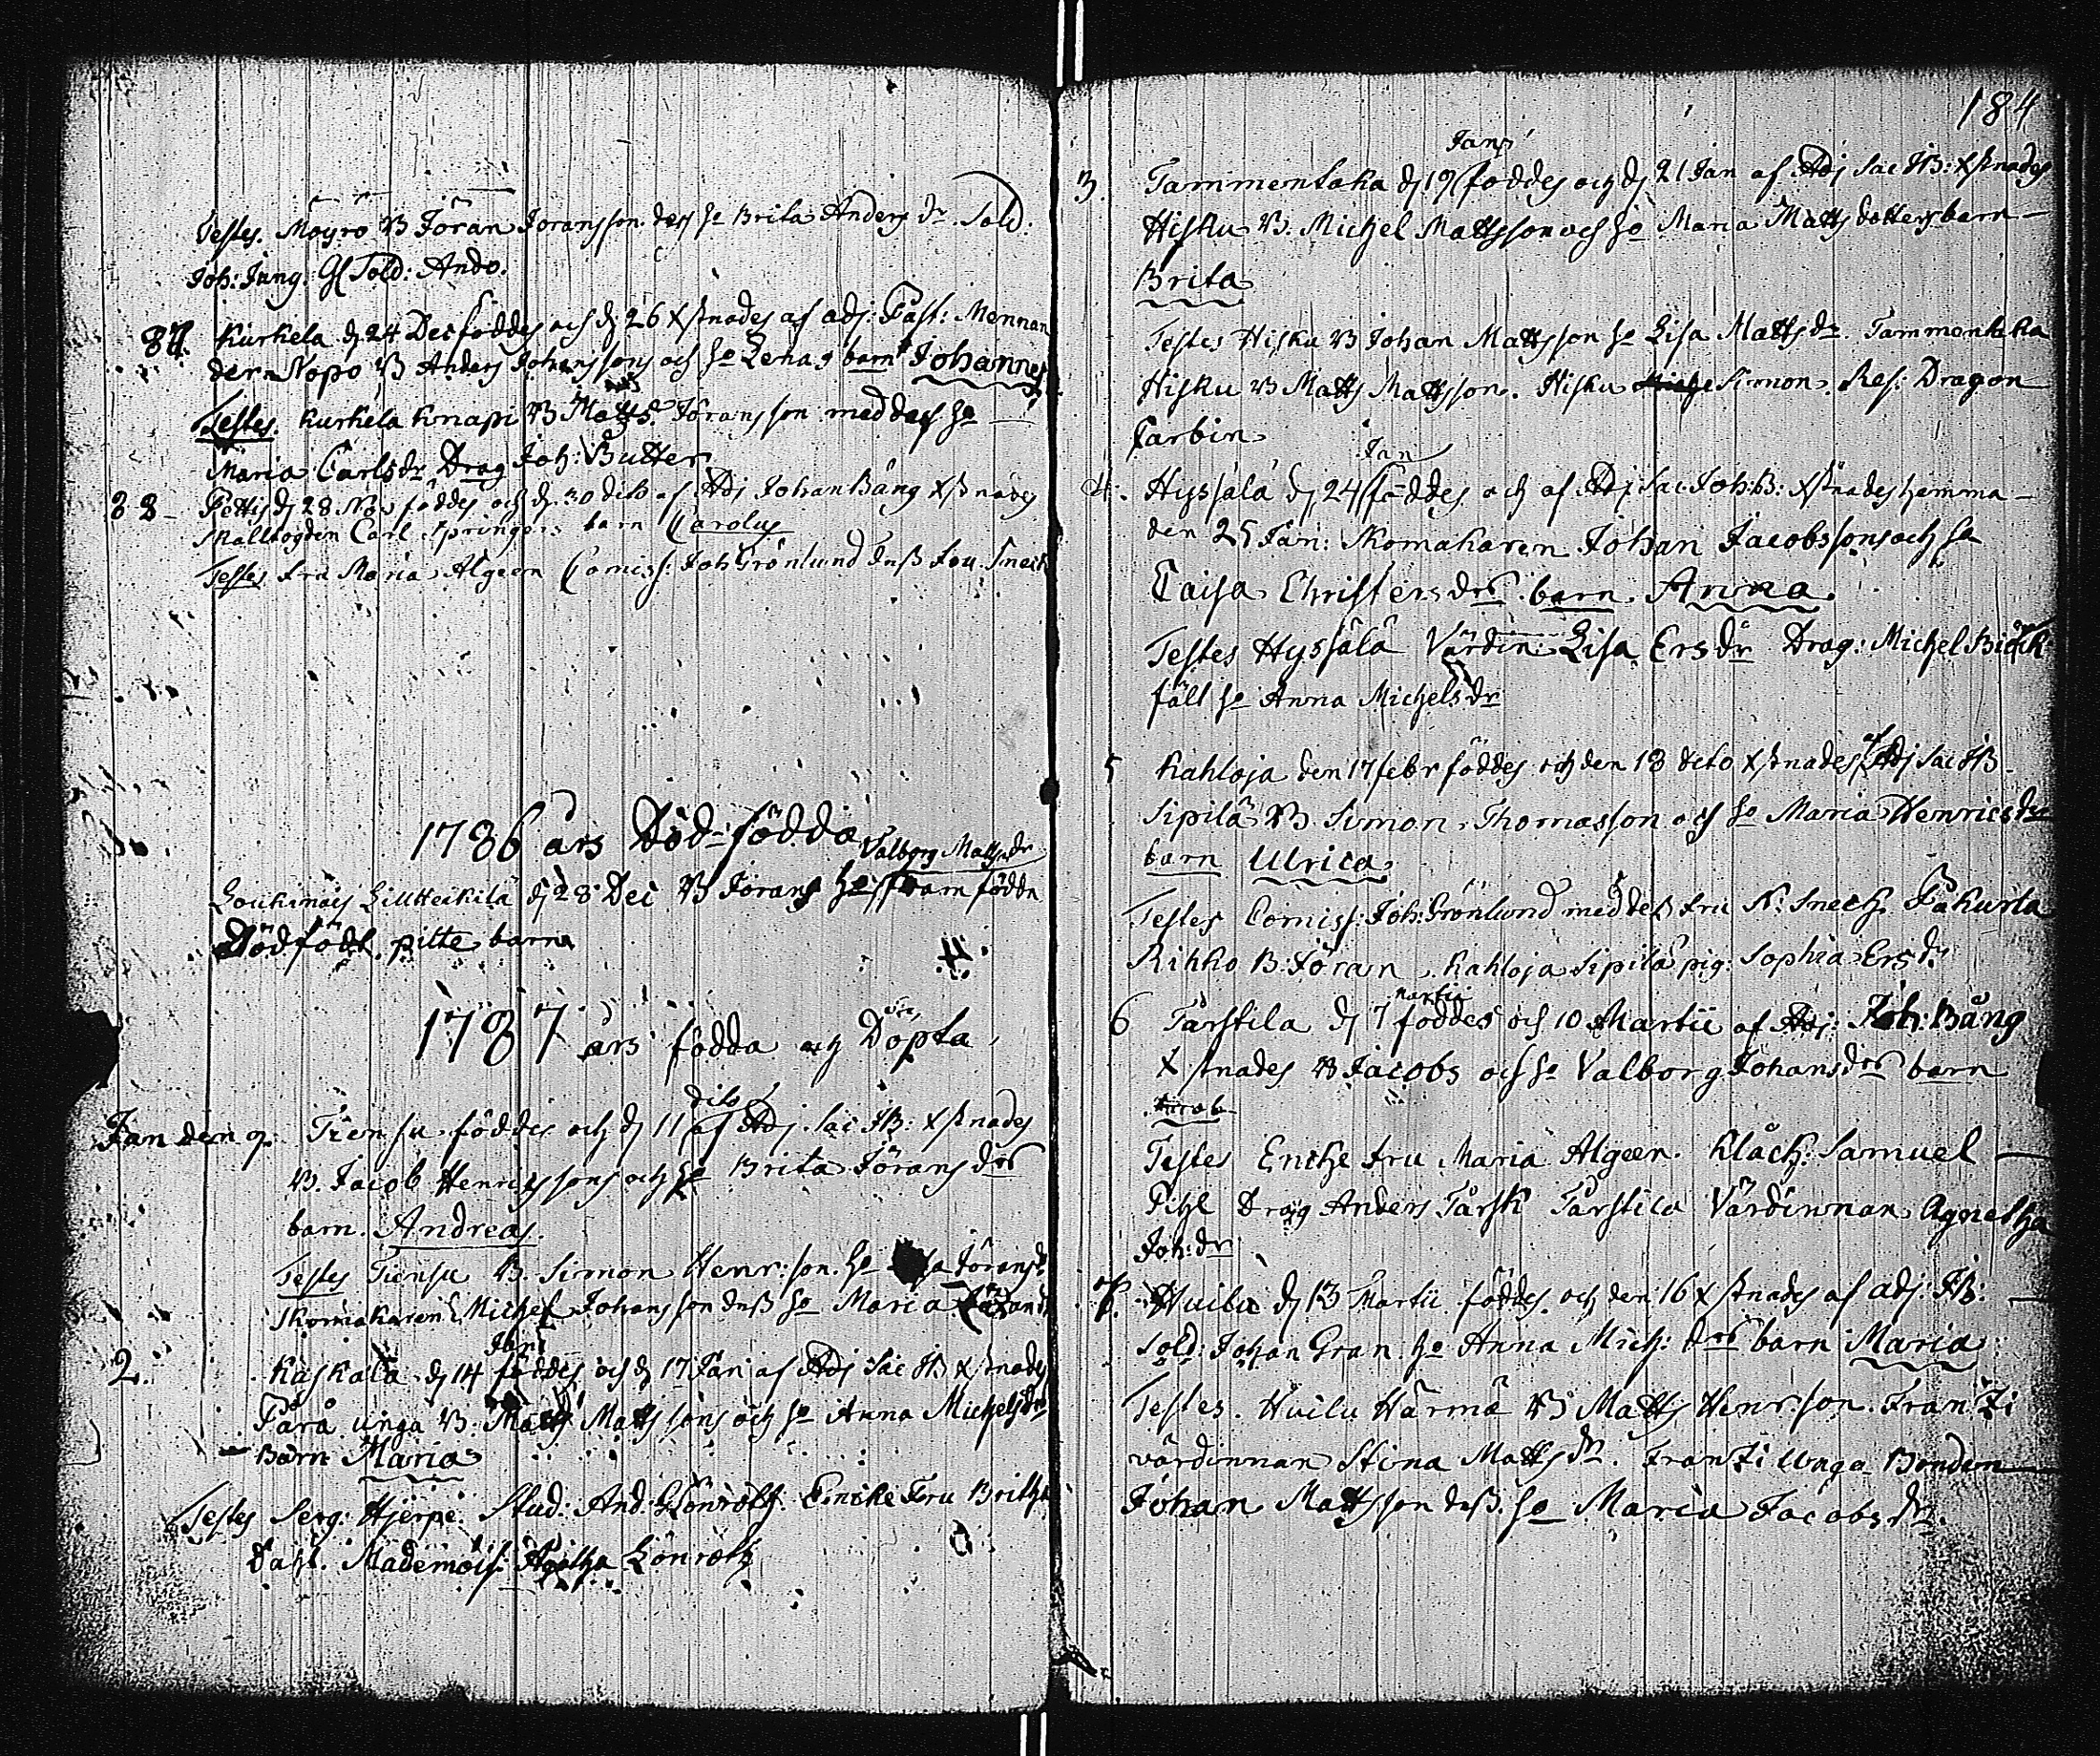 Testes. Möyrö B Jöran Joransson. dess ho Brita Anders dr. Sold:
Joh: Jung. Gl Sold: Ando.
87. Kurkela d. 24 Dec föddes och d. 26 Xstnades af adj: Past: Mennan
der Nopo B Anders Johanssons och ho Lenas barn Johannes
Testes. Kurkela Knapi B Matts Joransson med dess ho
Maria Carlsdr Drag Joh: Butter
88 Pettis d 28 Nov föddes och d. 30 dito af Adj Johan Bång Xstnades
Mållbogden Carl Springers barn Carolus
Testes Fru Maria Algeen Comiss: Joh Grönlund dess Fru Sneck
1786 års Död-födda
Valborg Matts dr
Loukinais Lill Heikilä d 28 Dec B Jorans ho framfödde
Dödfödt pilte barn
1787 års födda och Döpta
Jan den 9. Tiensu föddes och d 11 dito af Adj. Sac JB: Xstnades
B. Jacob Henricssons och ho Brita Jörans drs
barn. Andreas.
Testes Tiensu B. Simon Henr: son. ho Jöransd.
Skomakaren Michel Johansson dess ho Maria
2. Kaskala d 14 Jan: föddes och d 17 Jan af Adj Sac JB Xstnades
Pårå unga B. Matts Matts sons och ho Anna Michelsdrs
Barn Maria
Testes Serg: Hjerpe. Stud: And: Lönroth. Encke Fru Britha
Dahl. Mademois: Agatha Lönroth
184
3. Tammentaka d 19 Jan: föddes och d 21 Jan af Adj Sac JB: Xstnades
Hisku B. Michel Mattsson och ho Maria Matts dotters barn
Brita
Testes Hisku B Johan Mattsson ho Lisa Matts dr. Tammentaka
Hisku B Matts Mattsson. Hisku Simon. Res: Dragon
Carbin
4. Hyssälä d 24 Jan föddes och af Adj Sac. Joh: B: Xstnades hemma
den 25 Jan: Skomakaren Johan Jacobssons och ho
Caisa Christers drs barn Anna.
Testes Hyssälä Värdin: Lisa Ers dr Drag: Michel Biörk
fält ho Anna Michels dr
5 Kahloja den 17 febr föddes och den 18 dito Xstnades af Adj Sac JB.
Sipilä B. Simon Thomasson och ho Maria Henricsdrs
barn Ulrica
Testes Comiss: Joh: Grönlund med dess Fru N: Sneck. Pakurla
Rikko B. Jöran. Kahloja Sipilä pig: Sophia Ersdr
6 Tarstila d 7 Martii föddes och 10 Martii af Adj: Joh: Bång
Xstnades B Jacobs och ho Valborg Johans drs barn
Jacob
Testes Encke Fru Maria Algeen. Klåck: Samuel
Pihl Drag Anders Tårsk Tårstila Värdinnan Agnetha
Joh: dr
7. Huilu d 13 Martii föddes och den 16 Xstnades af adj: JB:
Sold: Johan Gran ho Anna Mich: drs barn Maria
Testes. Huilu Härmä B Matts Henr: son. Franzi
värdinnan Stina Matts dr. Franzi Unga Bonden
Johan Mattsson dess. ho Maria Jacobs dr.